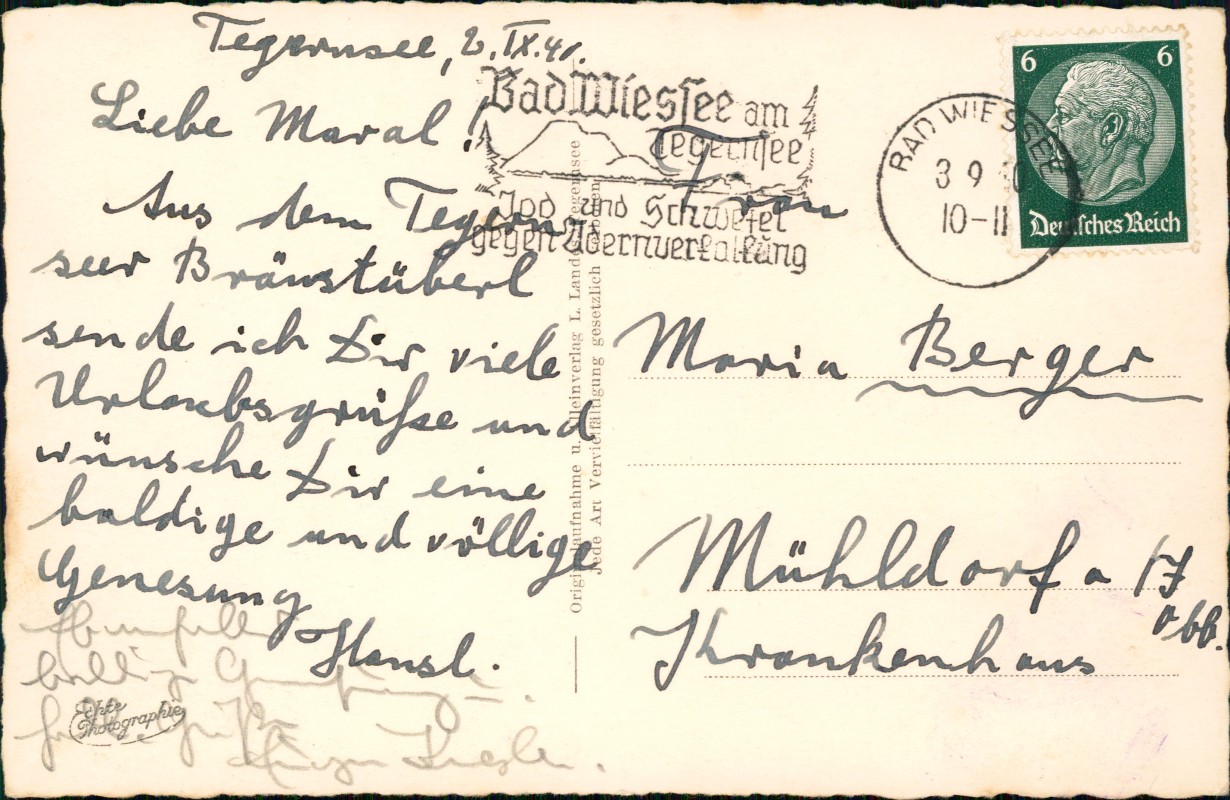 Tegernsee, 2. IX. 40.
Liebe Maral!
Aus dem Tegern
seer Bräustüberl
sende ich Dir viele
Urlaubsgrüße und
wünsche Dir eine
baldige und völlige
Genesung
Hansl.
Ebenfalls
baldige Genesung
Grüße
Echte
Photographie
Originalaufnahme u. Alleinverlag L. Tegernsee
Jede Art Vervielfältigung gesetzlich
Bad Wiessee am
Tegernsee
Jod und Schwefel
gegen Adernverkalkung
BAD WIESSEE
3 9 40
10-11
6 6
Deutsches Reich
Frau
Maria Berger
Mühldorf a
Obb.
Krankenhaus